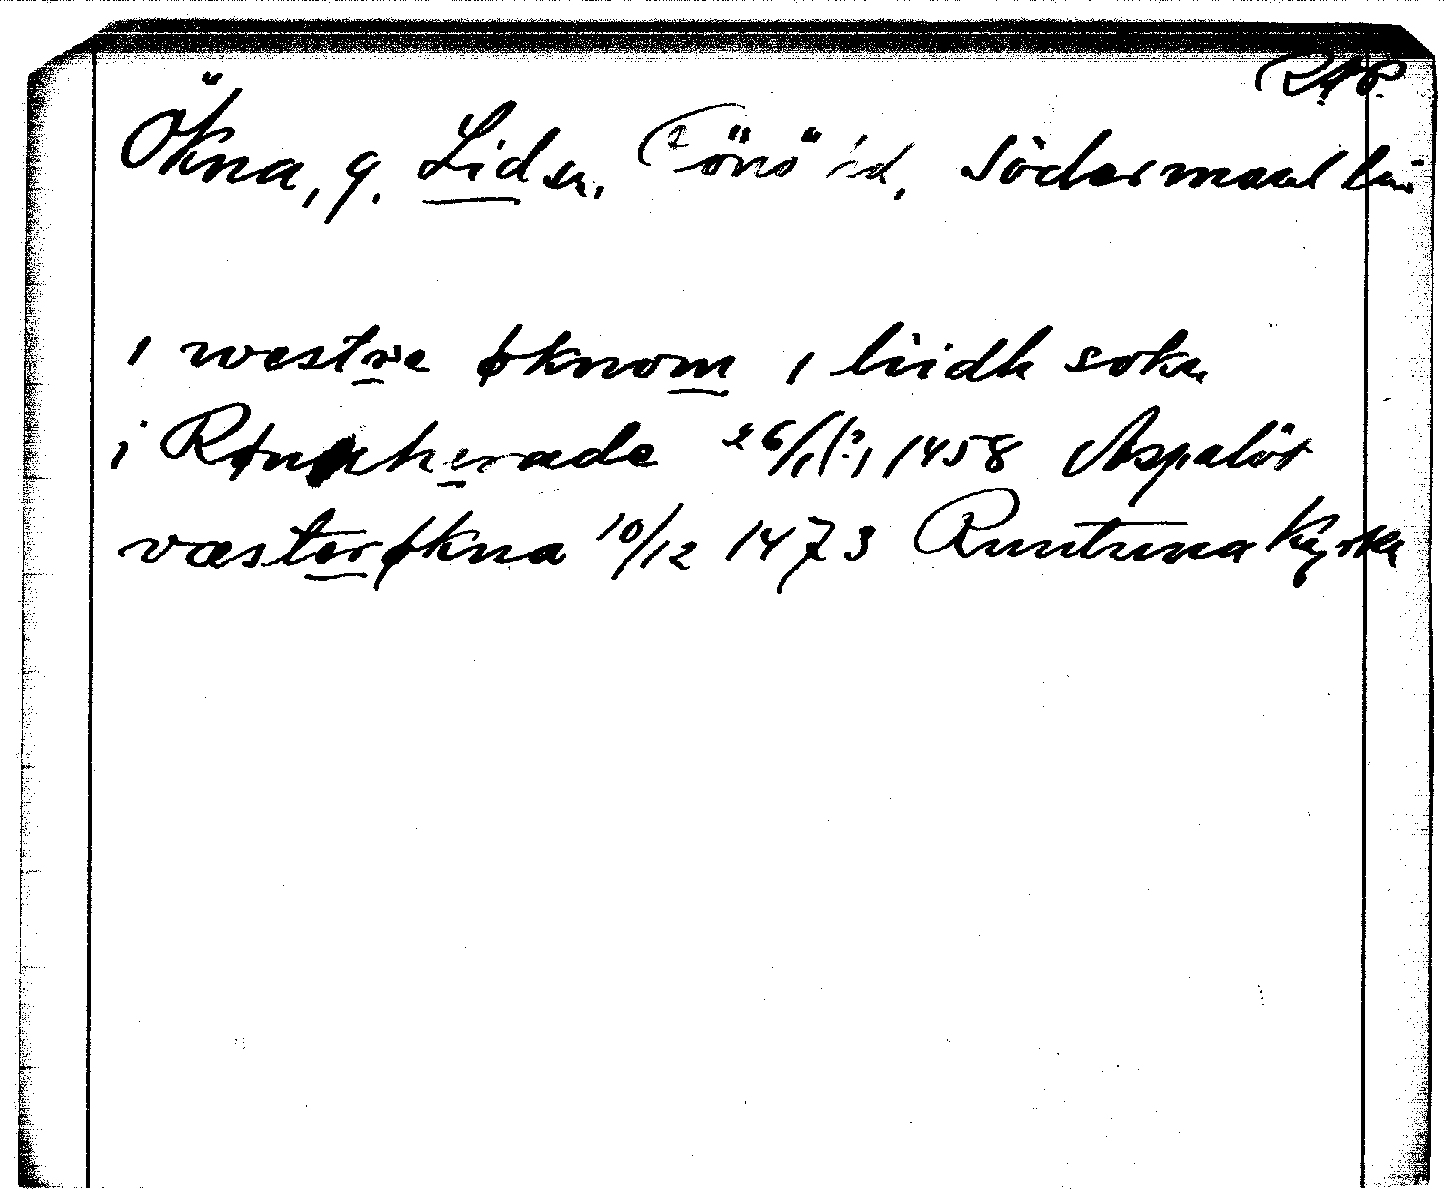 RAP.
Ökna, g. Lid sn, Rönö hd, Södermanl län
i westre øknom i liidh sokn
i Rønøherade 26/1(?) 1458 Aspalöt
væsterøkna 10/12 1473 Runtuna kyrka